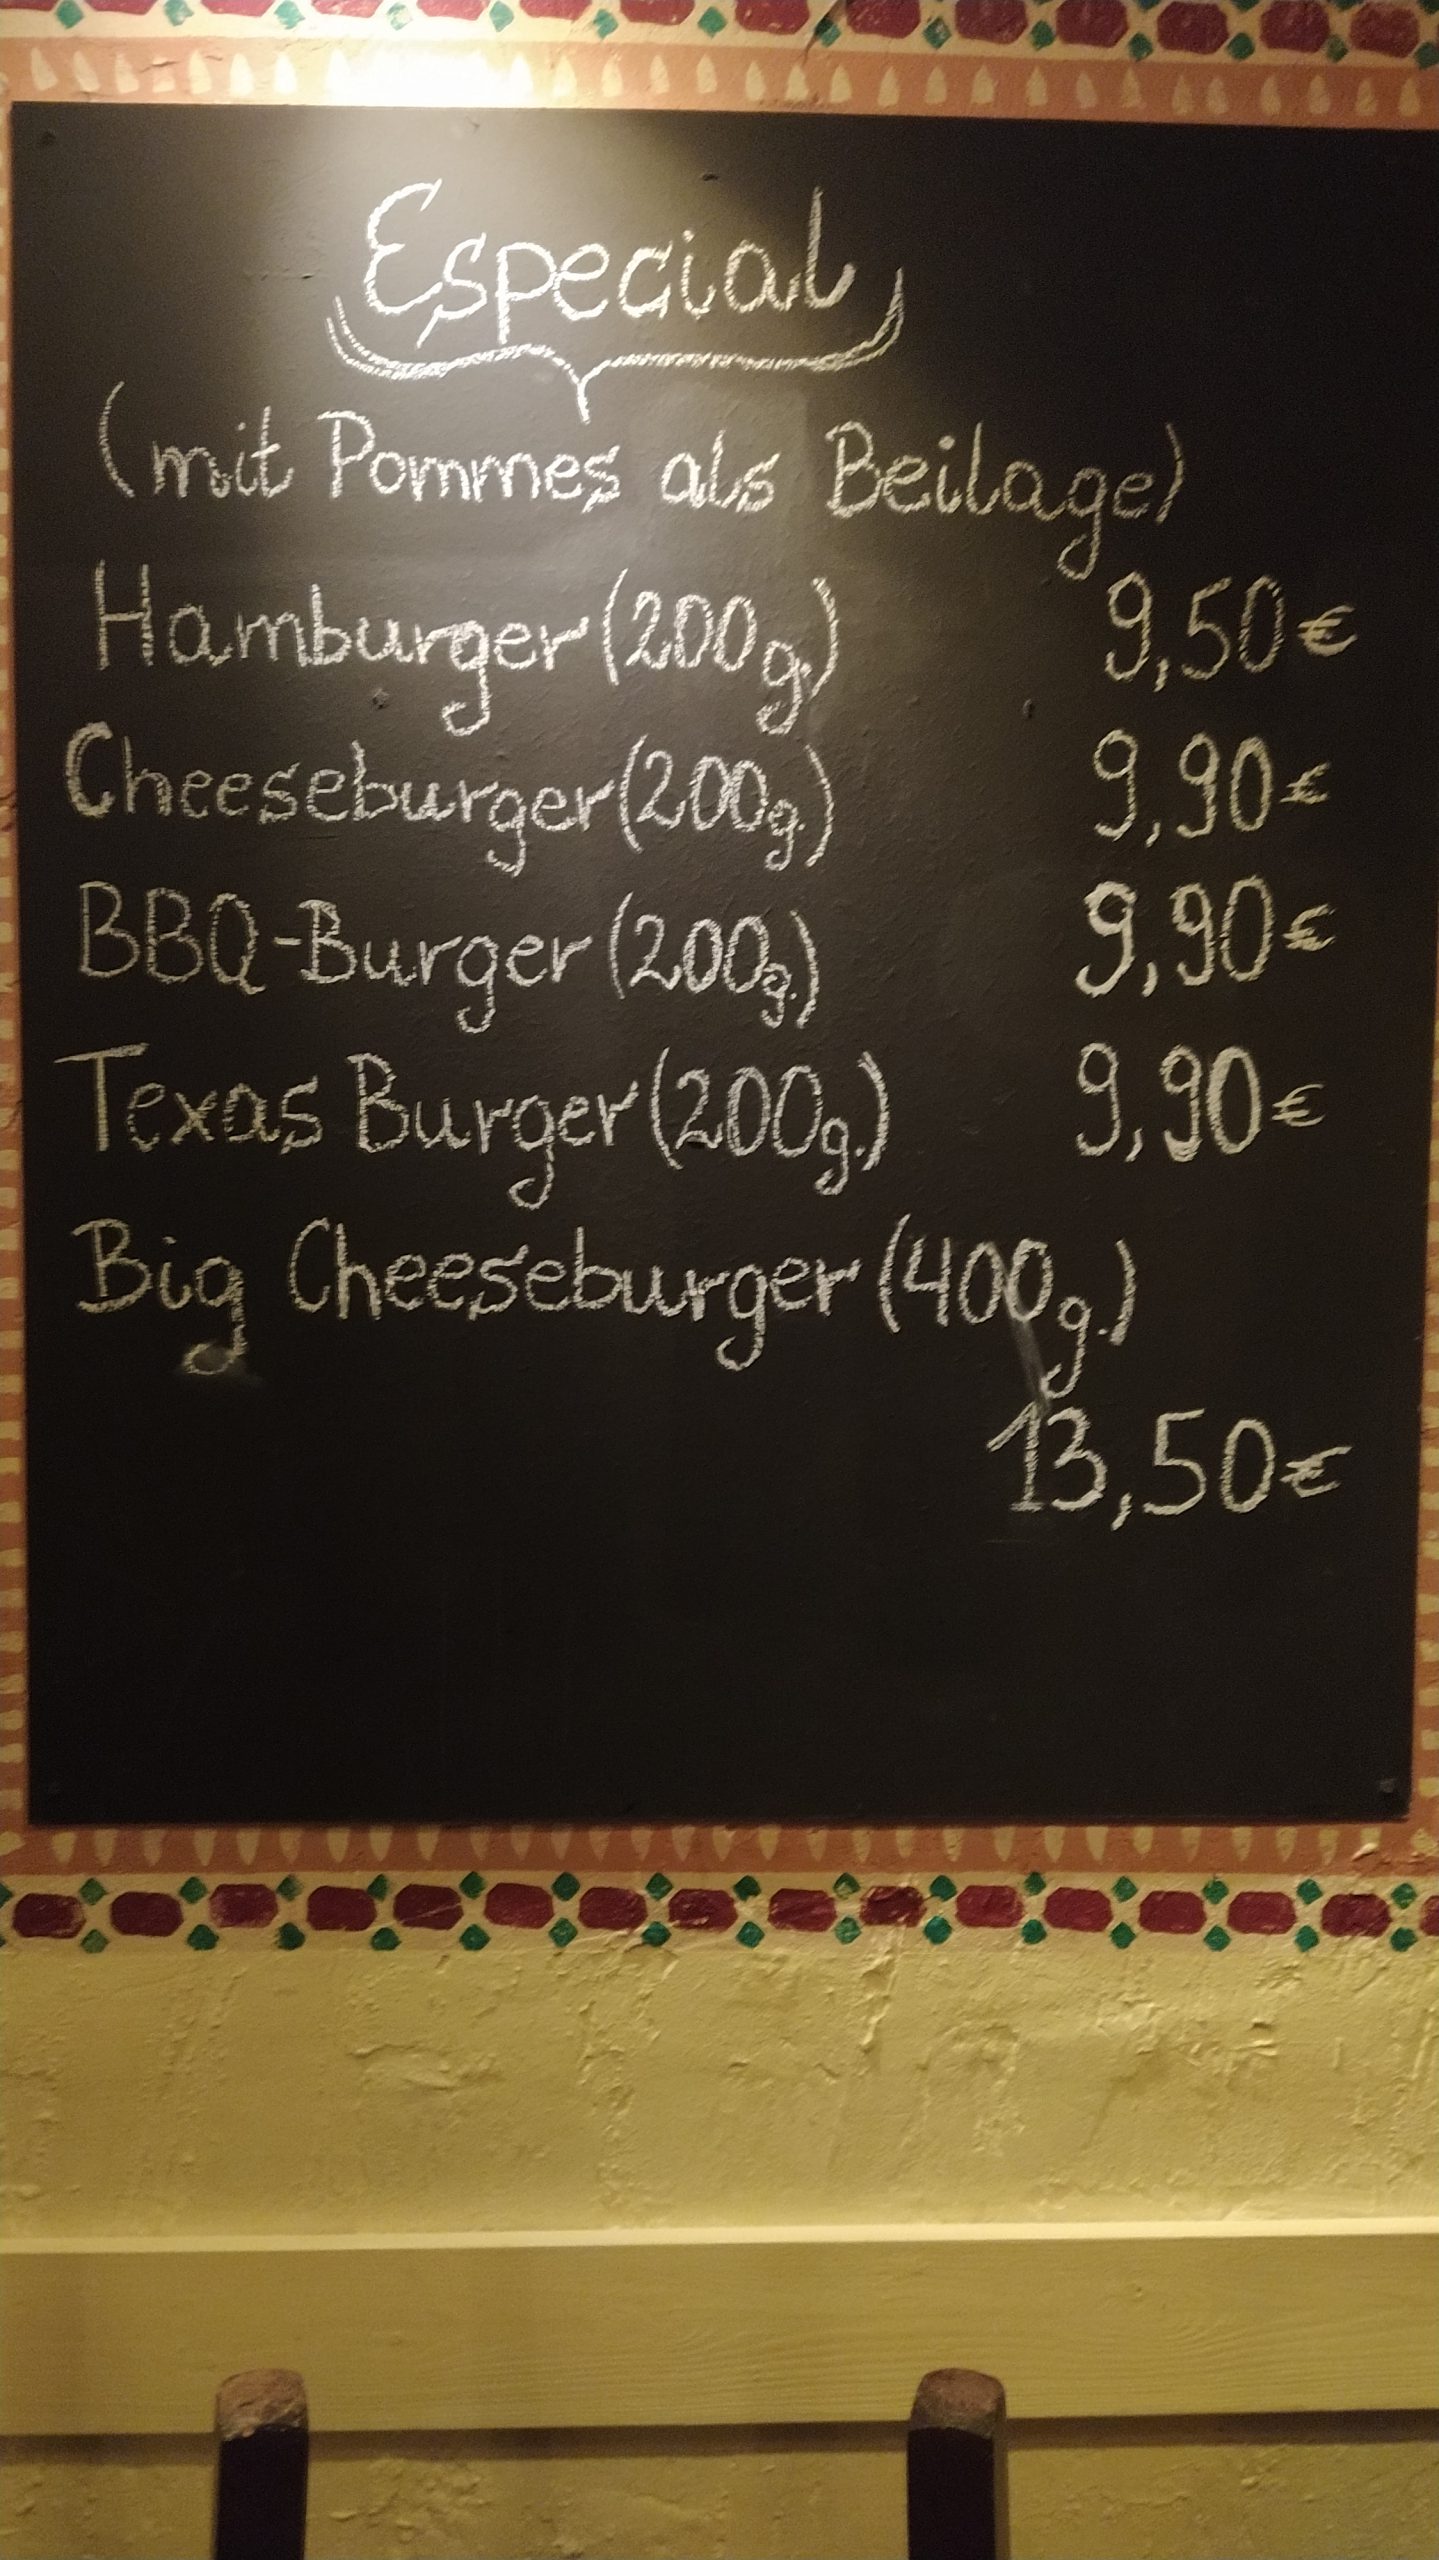 Especial
(mit Pommes als Beilage)
Hamburger (200g.) 9,50€
Cheeseburger (200g.) 9,90€
BBQ-Burger (200g.) 9,90€
Texas Burger (200g.) 9,90€
Big Cheeseburger (400g.)
13,50€